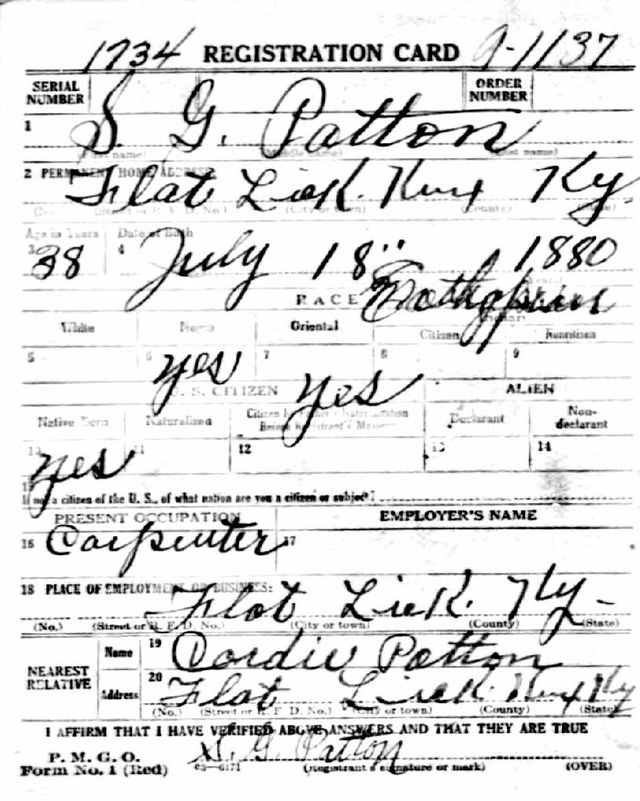 1734 REGISTRATION CARD A-1137
SERIAL NUMBER ORDER NUMBER
1 S. G. Patton
(First name) (Middle name) (Last name)
2 PERMANENT HOME ADDRESS:
Flat Lick. Knx Ky.
(No.) (Street or R. F. D. No.) (City or town) (County) (State)
Age in Years Date of Birth
3 38 4 July 18" 1880
RACE
White Negro Oriental Citizen Noncitizen
5 6 yes 7 yes 8 9
U. S. CITIZEN ALIEN
Native Born Naturalized Citizen by Father's Naturalization Before Registrant's Majority Declarant Non-declarant
10 yes 11 12 13 14
15
If not a citizen of the U. S., of what nation are you a citizen or subject?
PRESENT OCCUPATION EMPLOYER'S NAME
16 Carpenter 17
18 PLACE OF EMPLOYMENT OR BUSINESS:
Flat Lick. Ky-
(No.) (Street or R. F. D. No.) (City or town) (County) (State)
NEAREST RELATIVE Name 19 Cordie Patton
Address 20 Flat Lick. Knx Ky
(No.) (Street or R. F. D. No.) (City or town) (County) (State)
I AFFIRM THAT I HAVE VERIFIED ABOVE ANSWERS AND THAT THEY ARE TRUE
P. M. G. O.
Form No. 1 (Red) 03—6171 S. G. Patton
(Registrant's signature or mark) (OVER)